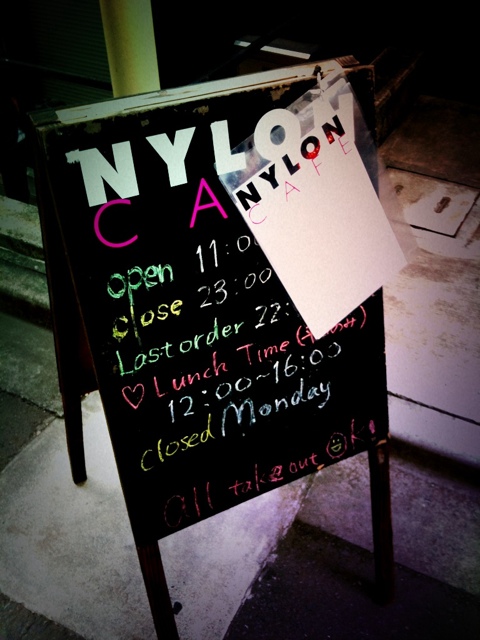 NYLON
CA
NYLON
CAFE
open 11:00
close 23:00
Last order 22:
♡ Lunch Time
12:00~16:00
closed Monday
All take out OK!